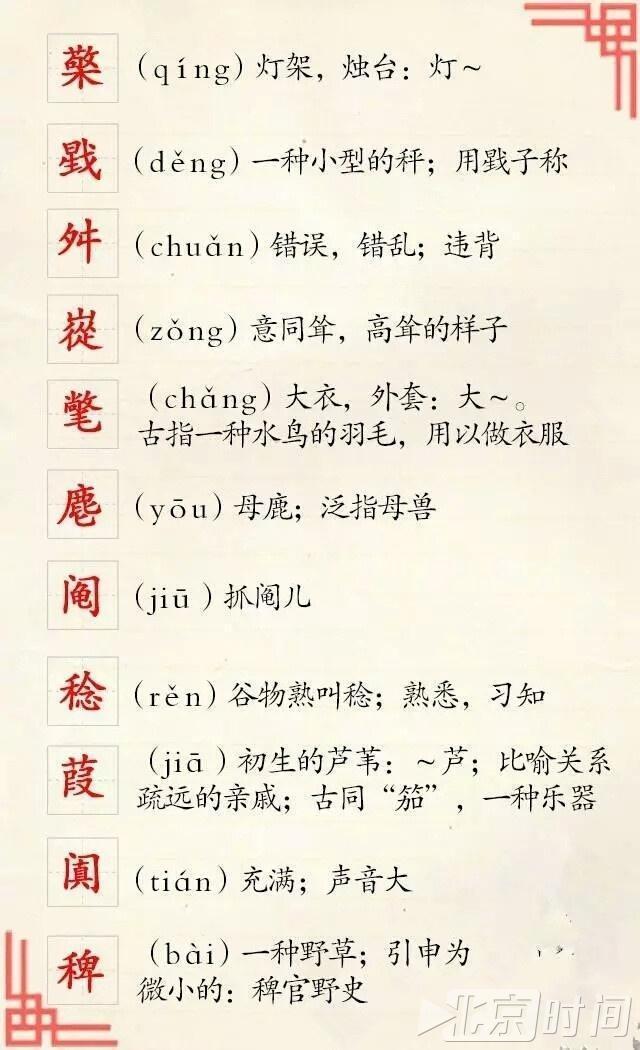 檠 (qíng)灯架，烛台：灯～
戥 (děng)一种小型的秤；用戥子称
舛 (chuǎn)错误，错乱；违背
嵸 (zǒng)意同耸，高耸的样子
氅 (chǎng)大衣，外套：大～。
古指一种水鸟的羽毛，用以做衣服
麀 (yōu)母鹿；泛指母兽
阄 (jiū)抓阄儿
稔 (rěn)谷物熟叫稔；熟悉，习知
葭 (jiā)初生的芦苇：～芦；比喻关系
疏远的亲戚；古同“笳”，一种乐器
阗 (tián)充满；声音大
稗 (bài)一种野草；引申为
微小的：稗官野史
北京时间